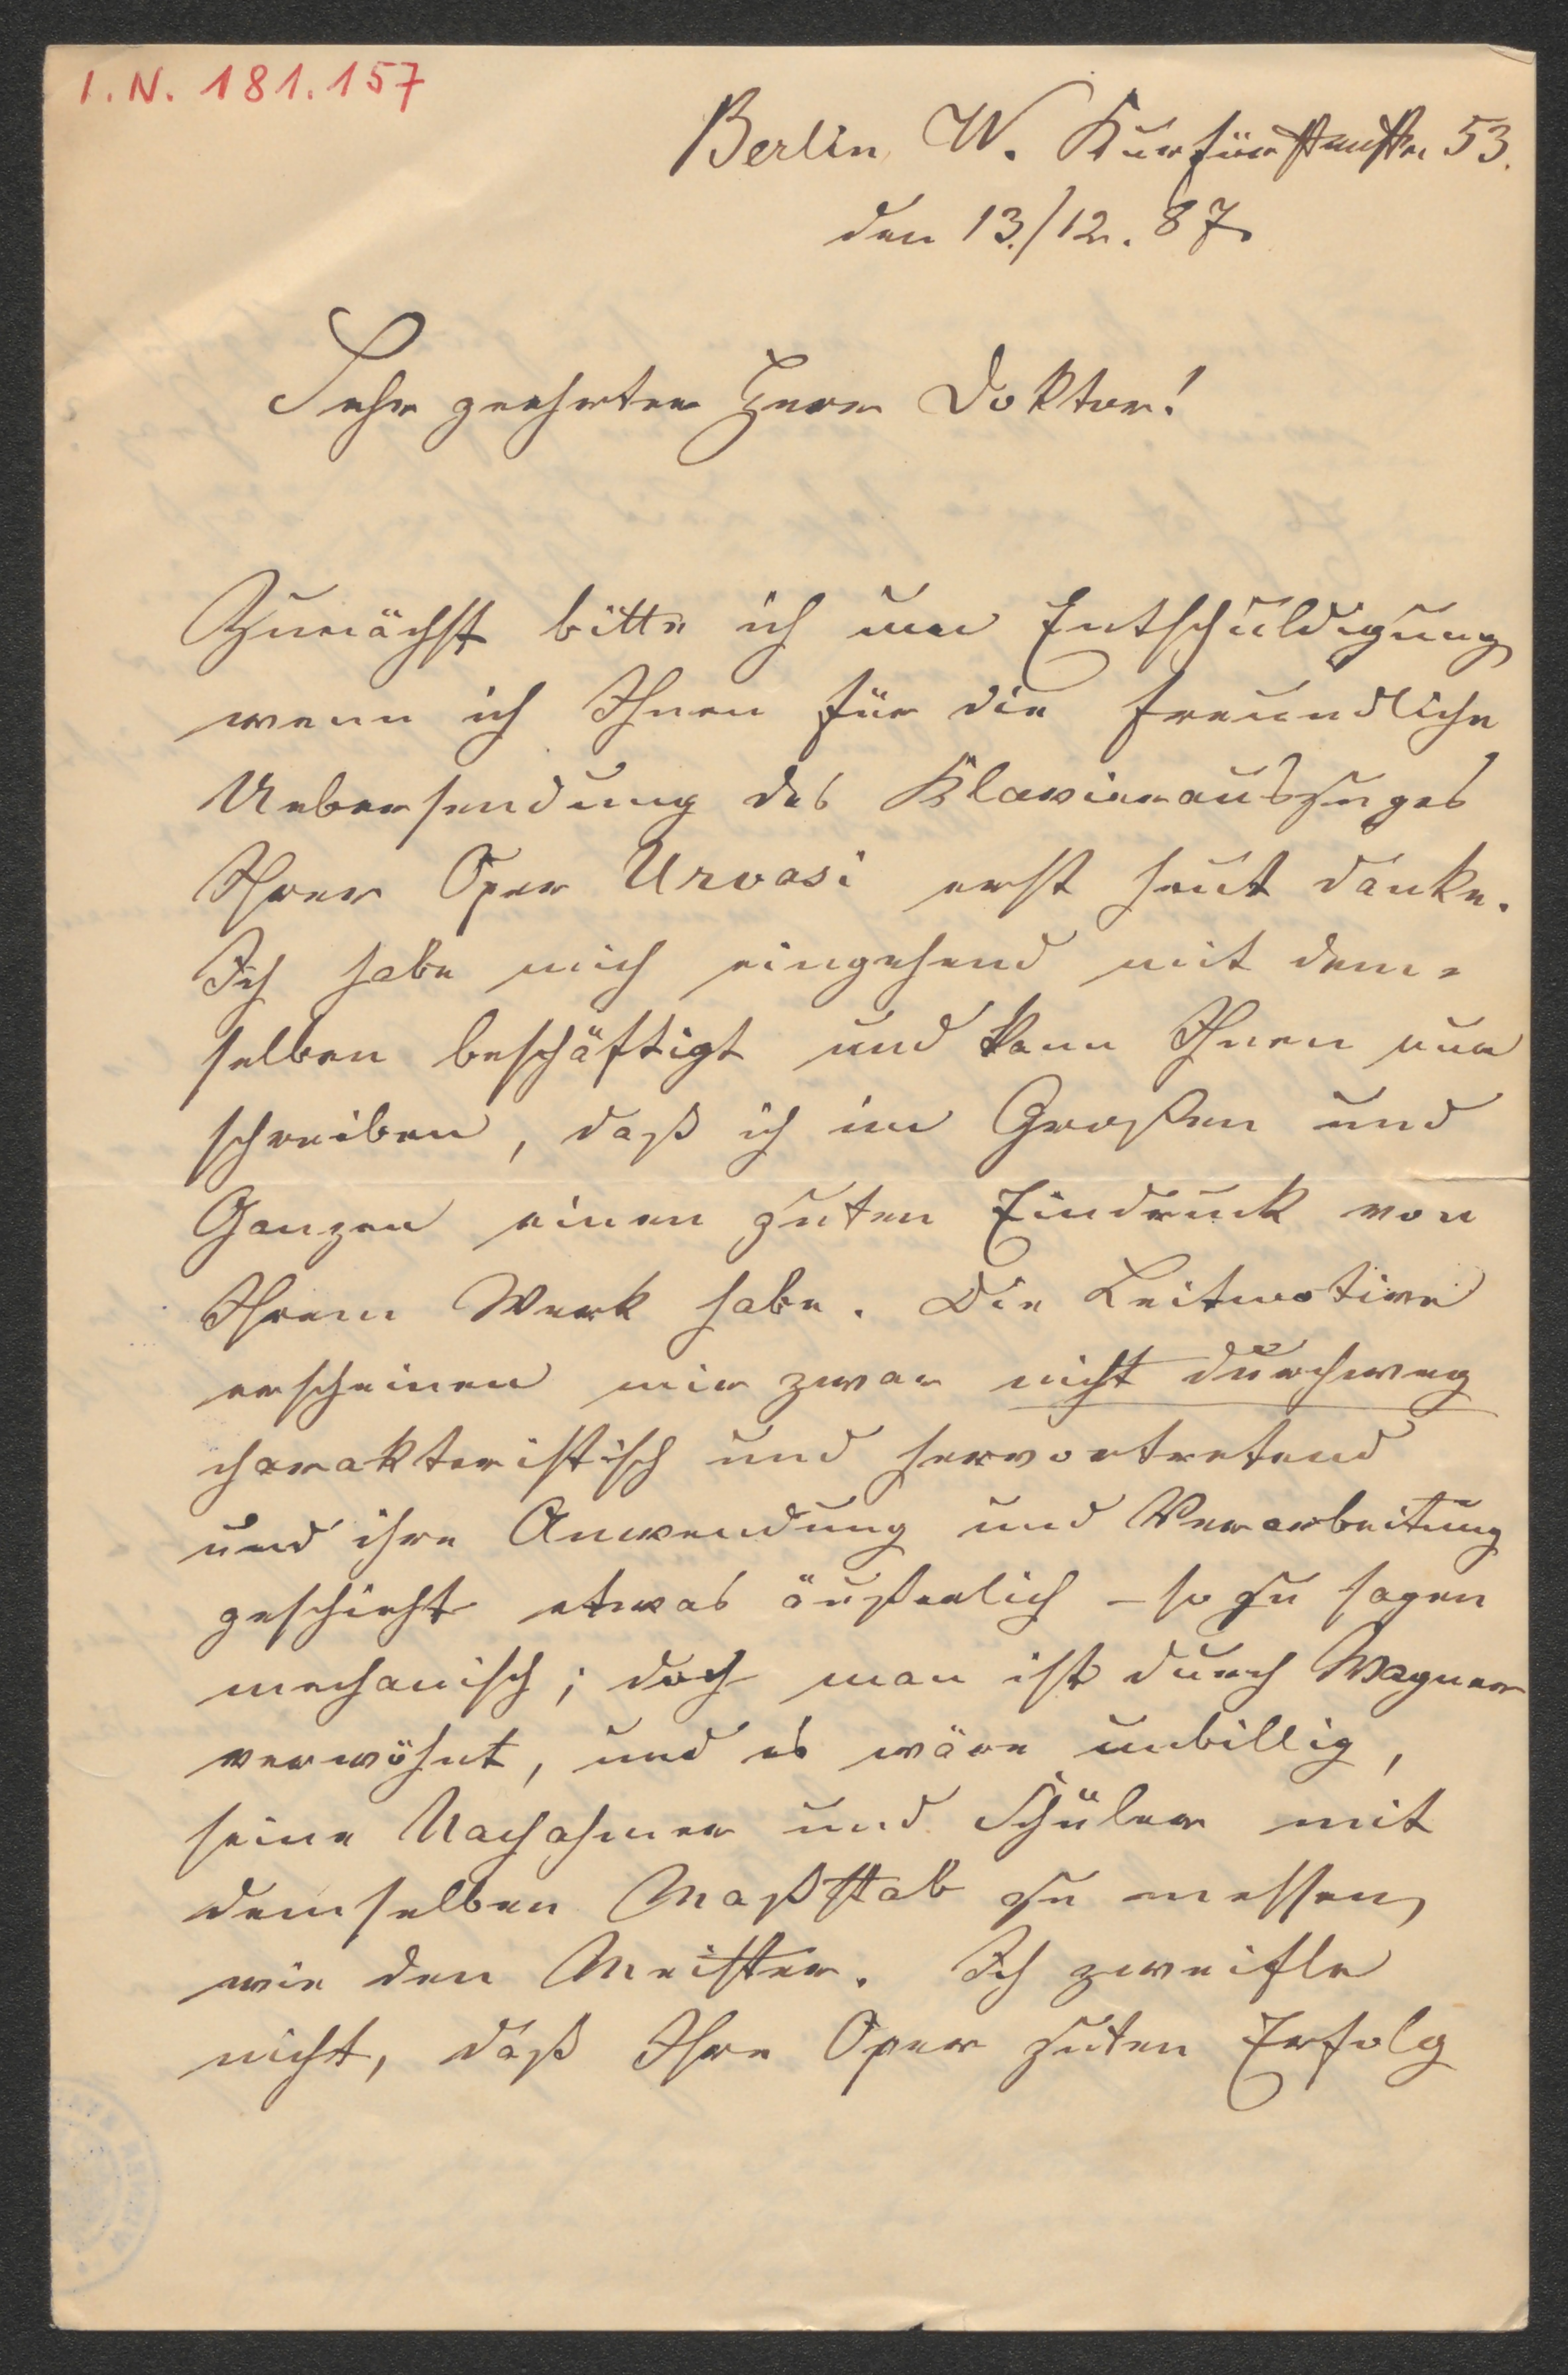 I. N. 181.157
Berlin W. Kurfürstenstr 53.
den 13./12. 87.
Sehr geehrter Herr Doktor!
Zunächst bitte ich um Entschuldigung
wenn ich Ihnen für die freundliche
Uebersendung des Klavierauszuges
Ihrer Oper Urvasi erst heut danke.
Ich habe mich eingehend mit dem-
selben beschäftigt und kann Ihnen nur
schreiben, daß ich im Großen und
Ganzen einen guten Eindruck von
Ihrem Werk habe. Die Leitmotive
erscheinen mir zwar nicht durchweg
charakteristisch und hervortretend
und ihre Anwendung und Verarbeitung
geschieht etwas äußerlich – so zu sagen
mechanisch; doch man ist durch Wagner
verwöhnt, und es wäre unbillig,
seine Nachahmer und Schüler mit
demselben Maßstab zu messen,
wie den Meister. Ich zweifle
nicht, daß Ihre Oper guten Erfolg